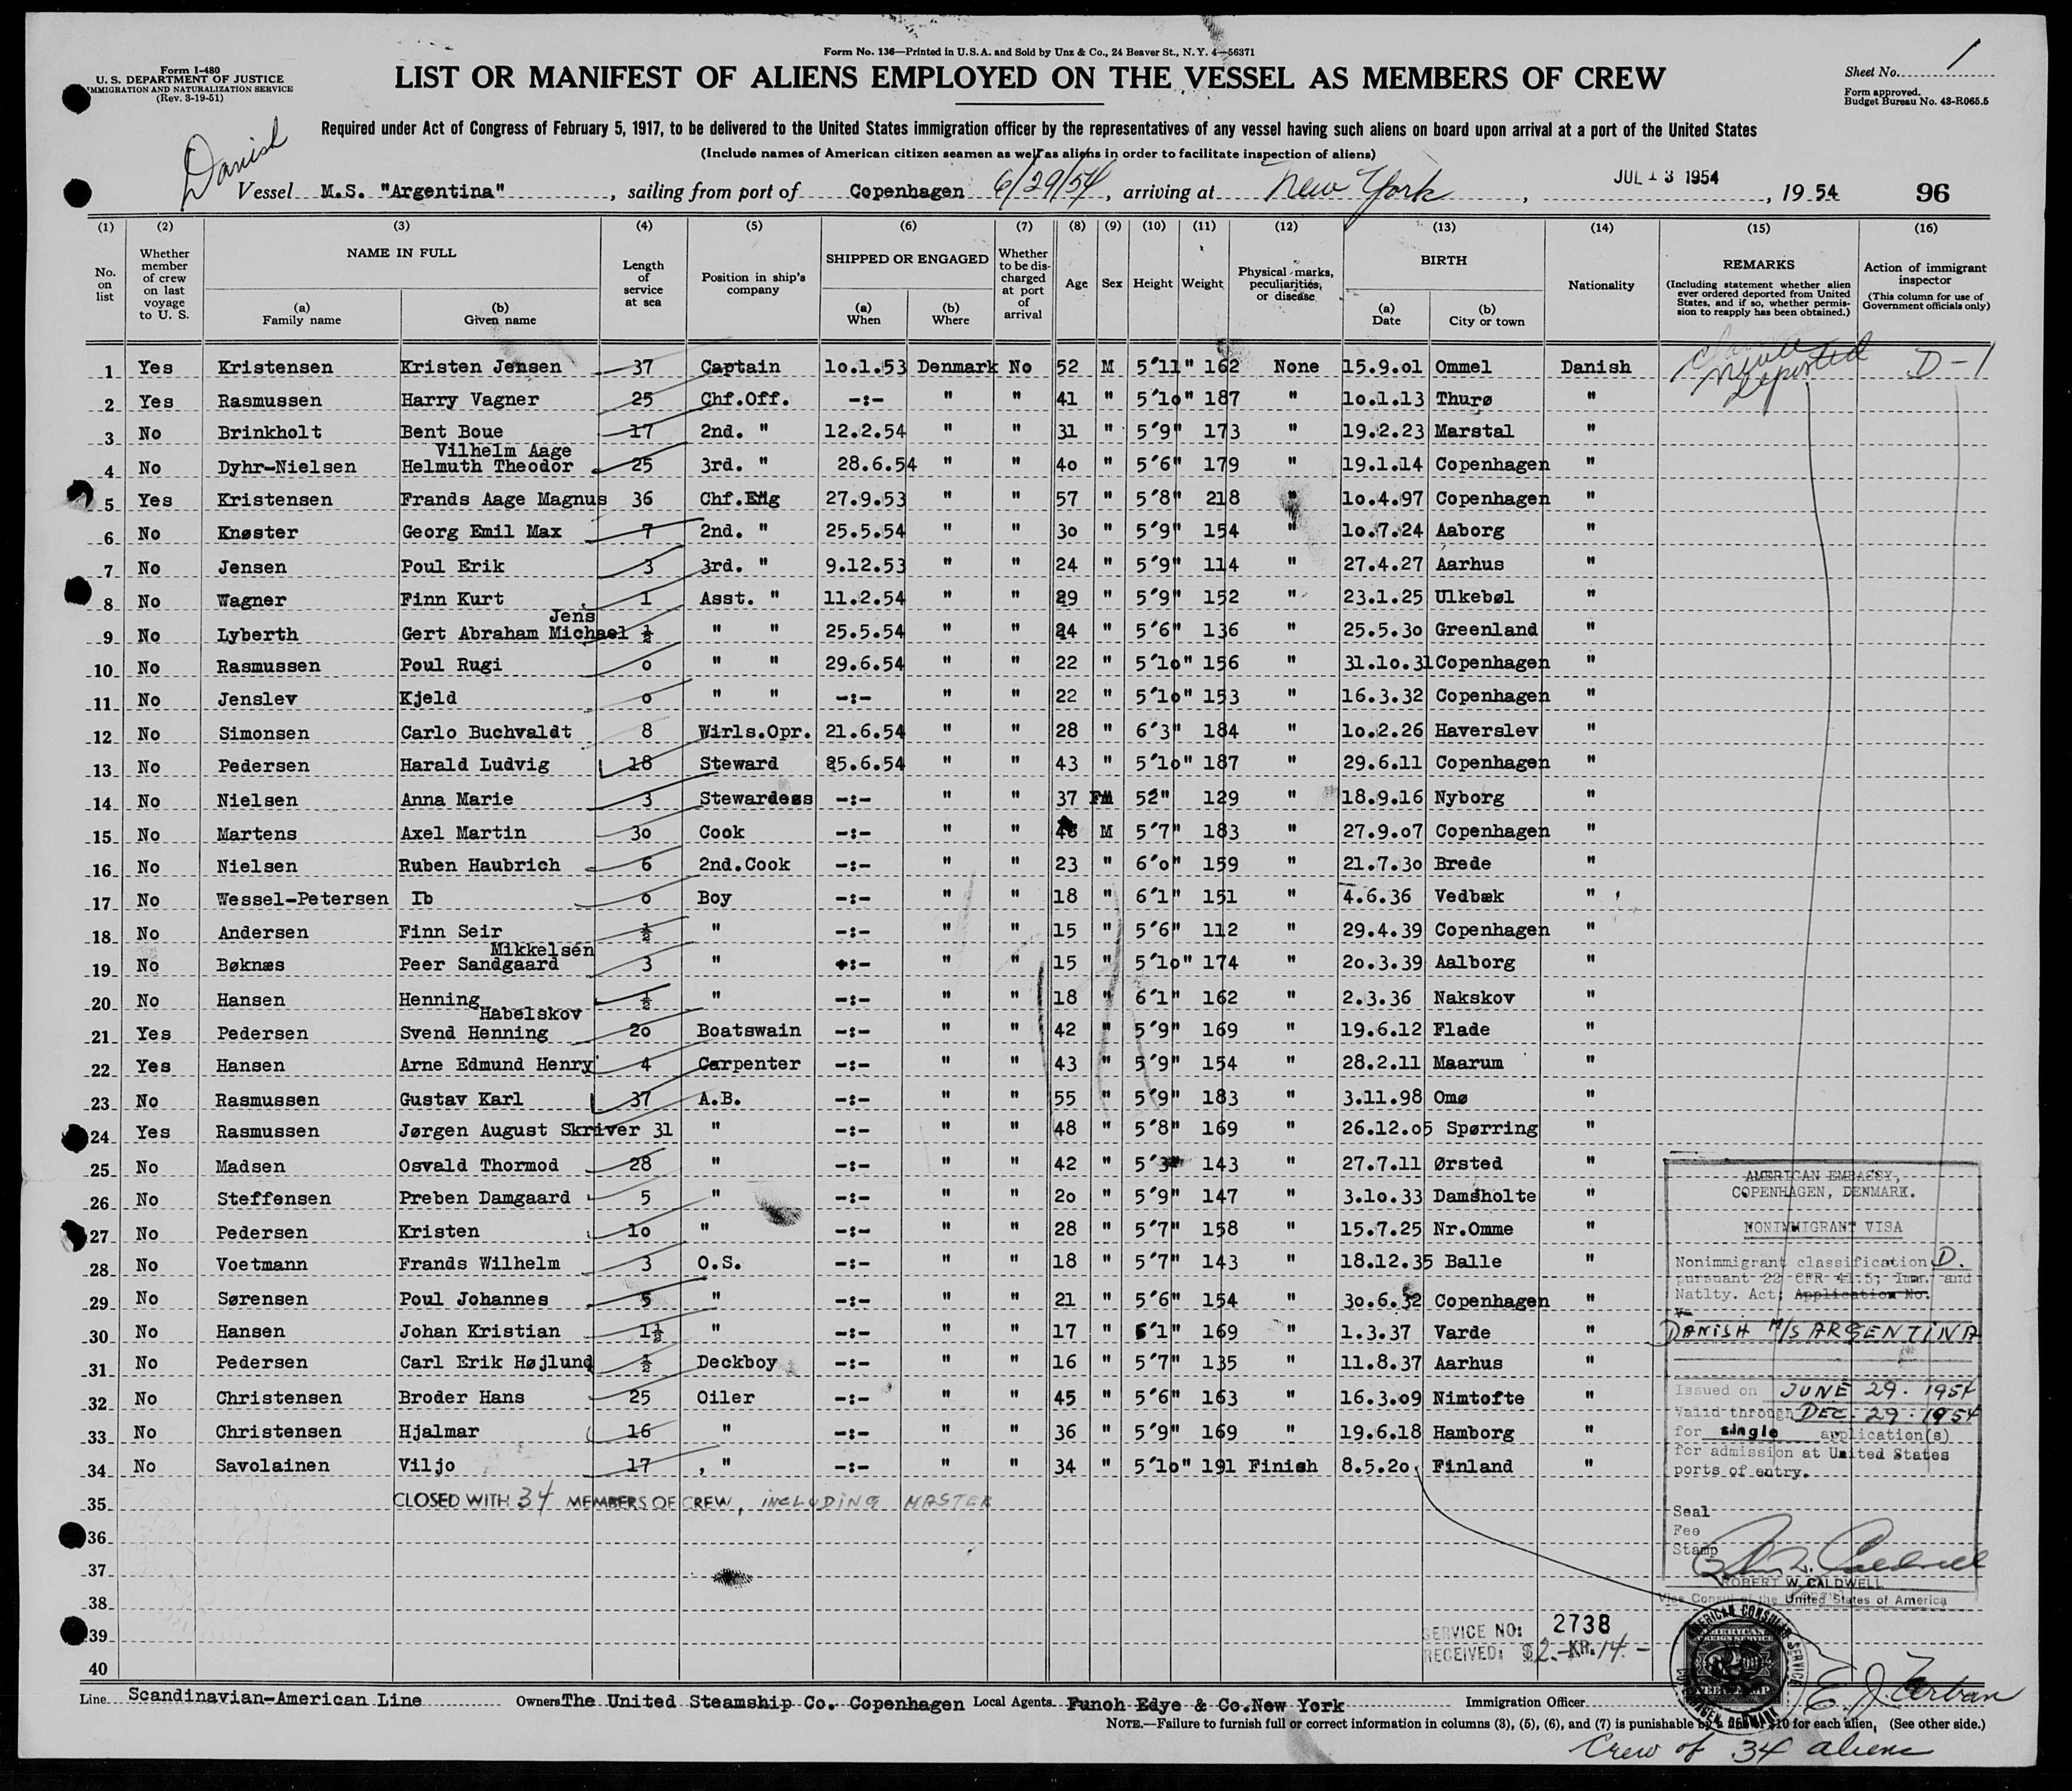 Form No. 136—Printed in U.S.A. and Sold by Unz & Co., 24 Beaver St., N. Y. 4—56371
Form I-480
U. S. DEPARTMENT OF JUSTICE
IMMIGRATION AND NATURALIZATION SERVICE
(Rev. 3-19-51)
LIST OR MANIFEST OF ALIENS EMPLOYED ON THE VESSEL AS MEMBERS OF CREW
Sheet No. 1
Form approved.
Budget Bureau No. 43-R065.5
Required under Act of Congress of February 5, 1917, to be delivered to the United States immigration officer by the representatives of any vessel having such aliens on board upon arrival at a port of the United States
(Include names of American citizen seamen as well as aliens in order to facilitate inspection of aliens)
Danish
Vessel M.S. "Argentina", sailing from port of Copenhagen 6/29/54, arriving at New York, JUL 13 1954, 19 54 96
(1) (2) (3) (4) (5) (6) (7) (8) (9) (10) (11) (12) (13) (14) (15) (16)
No. on list
Whether member of crew on last voyage to U. S.
NAME IN FULL
(a) Family name
(b) Given name
Length of service at sea
Position in ship's company
SHIPPED OR ENGAGED
(a) When
(b) Where
Whether to be discharged at port of arrival
Age
Sex
Height
Weight
Physical marks, peculiarities, or disease
BIRTH
(a) Date
(b) City or town
Nationality
REMARKS
(Including statement whether alien ever ordered deported from United States, and if so, whether permission to reapply has been obtained.)
Action of immigrant inspector
(This column for use of Government officials only)
1 Yes Kristensen Kristen Jensen 37 Captain 10.1.53 Denmark No 52 M 5'11" 162 None 15.9.01 Ommel Danish never deported D-1
2 Yes Rasmussen Harry Vagner 25 Chf.Off. -:- " " 41 " 5'10" 187 " 10.1.13 Thurø "
3 No Brinkholt Bent Boue 17 2nd. " 12.2.54 " " 31 " 5'9" 173 " 19.2.23 Marstal "
Vilhelm Aage
4 No Dyhr-Nielsen Helmuth Theodor 25 3rd. " 28.6.54 " " 40 " 5'6" 179 " 19.1.14 Copenhagen "
5 Yes Kristensen Frands Aage Magnus 36 Chf.Eng 27.9.53 " " 57 " 5'8" 218 " 10.4.97 Copenhagen "
6 No Knøster Georg Emil Max 7 2nd. " 25.5.54 " " 30 " 5'9" 154 " 10.7.24 Aaborg "
7 No Jensen Poul Erik 3 3rd. " 9.12.53 " " 24 " 5'9" 114 " 27.4.27 Aarhus "
8 No Wagner Finn Kurt 1 Asst. " 11.2.54 " " 29 " 5'9" 152 " 23.1.25 Ulkebøl "
Jens
9 No Lyberth Gert Abraham Michael ½ " " 25.5.54 " " 24 " 5'6" 136 " 25.5.30 Greenland "
10 No Rasmussen Poul Rugi 0 " " 29.6.54 " " 22 " 5'10" 156 " 31.10.31 Copenhagen "
11 No Jenslev Kjeld 0 " " -:- " " 22 " 5'10" 153 " 16.3.32 Copenhagen "
12 No Simonsen Carlo Buchvaldt 8 Wirls.Opr. 21.6.54 " " 28 " 6'3" 184 " 10.2.26 Haverslev "
13 No Pedersen Harald Ludvig 18 Steward 25.6.54 " " 43 " 5'10" 187 " 29.6.11 Copenhagen "
14 No Nielsen Anna Marie 3 Stewardess -:- " " 37 Fm 52" 129 " 18.9.16 Nyborg "
15 No Martens Axel Martin 30 Cook -:- " " M 5'7" 183 " 27.9.07 Copenhagen "
16 No Nielsen Ruben Haubrich 6 2nd.Cook -:- " " 23 " 6'0" 159 " 21.7.30 Brede "
17 No Wessel-Petersen Ib 0 Boy -:- " " 18 " 6'1" 151 " 4.6.36 Vedbæk "
18 No Andersen Finn Seir ½ " -:- " " 15 " 5'6" 112 " 29.4.39 Copenhagen "
Mikkelsen
19 No Bøknæs Peer Sandgaard 3 " -:- " " 15 " 5'10" 174 " 20.3.39 Aalborg "
20 No Hansen Henning ½ " -:- " " 18 " 6'1" 162 " 2.3.36 Nakskov "
Habelskov
21 Yes Pedersen Svend Henning 20 Boatswain -:- " " 42 " 5'9" 169 " 19.6.12 Flade "
22 Yes Hansen Arne Edmund Henry 4 Carpenter -:- " " 43 " 5'9" 154 " 28.2.11 Maarum "
23 No Rasmussen Gustav Karl 37 A.B. -:- " " 55 " 5'9" 183 " 3.11.98 Omø "
24 Yes Rasmussen Jørgen August Skriver 31 " -:- " " 48 " 5'8" 169 " 26.12.05 Spørring "
25 No Madsen Osvald Thormod 28 " -:- " " 42 " 5'3" 143 " 27.7.11 Ørsted "
26 No Steffensen Preben Damgaard 5 " -:- " " 20 " 5'9" 147 " 3.10.33 Damsholte "
27 No Pedersen Kristen 10 " -:- " " 28 " 5'7" 158 " 15.7.25 Nr.Omme "
28 No Voetmann Frands Wilhelm 3 O.S. -:- " " 18 " 5'7" 143 " 18.12.35 Balle "
29 No Sørensen Poul Johannes 5 " -:- " " 21 " 5'6" 154 " 30.6.32 Copenhagen "
30 No Hansen Johan Kristian 1½ " -:- " " 17 " 6'1" 169 " 1.3.37 Varde "
31 No Pedersen Carl Erik Højlund ½ Deckboy -:- " " 16 " 5'7" 135 " 11.8.37 Aarhus "
32 No Christensen Broder Hans 25 Oiler -:- " " 45 " 5'6" 163 " 16.3.09 Nimtofte "
33 No Christensen Hjalmar 16 " -:- " " 36 " 5'9" 169 " 19.6.18 Hamborg "
34 No Savolainen Viljo 17 " -:- " " 34 " 5'10" 191 Finish 8.5.20 Finland "
35 CLOSED WITH 34 MEMBERS OF CREW, INCLUDING MASTER
36
37
38
39
40
AMERICAN EMBASSY,
COPENHAGEN, DENMARK.
NONIMMIGRANT VISA
Nonimmigrant classification D.
pursuant 22 CFR 41.5; Imm. and
Natlty. Act; Application No.
V-
DANISH M/S ARGENTINA
Issued on JUNE 29. 1954
Valid through DEC. 29. 1954
for single application(s)
for admission at United States
ports of entry.
Seal
Fee
Stamp
ROBERT W. CALDWELL
Vice Consul of the United States of America
SERVICE NO: 2738
RECEIVED: $2.-KR.14.-
AMERICAN CONSULAR SERVICE
COPENHAGEN, DENMARK
AMERICAN
FOREIGN SERVICE
FEE STAMP
Line Scandinavian-American Line Owners The United Steamship Co. Copenhagen Local Agents Funch Edye & Co.New York Immigration Officer
NOTE.—Failure to furnish full or correct information in columns (3), (5), (6), and (7) is punishable by a fine of $10 for each alien. (See other side.)
Crew of 34 aliens